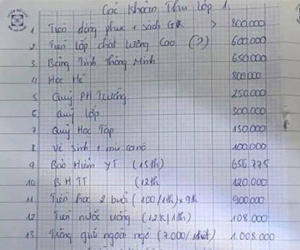 Các Khoản Thu Lớp 1
1 Tiền đồng phục + sách Gk > 800.000
2 Tiền lớp chất lượng Cao (?) 600.000
3 Bảng Tính Thông Minh 650.000
4 Học Hè 800.000
5 Quỹ PH Trường 250.000
6 Quỹ Lớp 300.000
7 Quỹ Học Tập 150.000
8 Vệ sinh + 100.000
9 Bảo Hiểm YT (15th) 656.775
10 BHTT (12th) 120.000
11 Tiền học 2 buổi (100/1th) x 9th 900.000
12 Tiền nước uống (12k/1th) 108.000
13 Trông giữ ngoài giờ (7.000/ 1.008.000